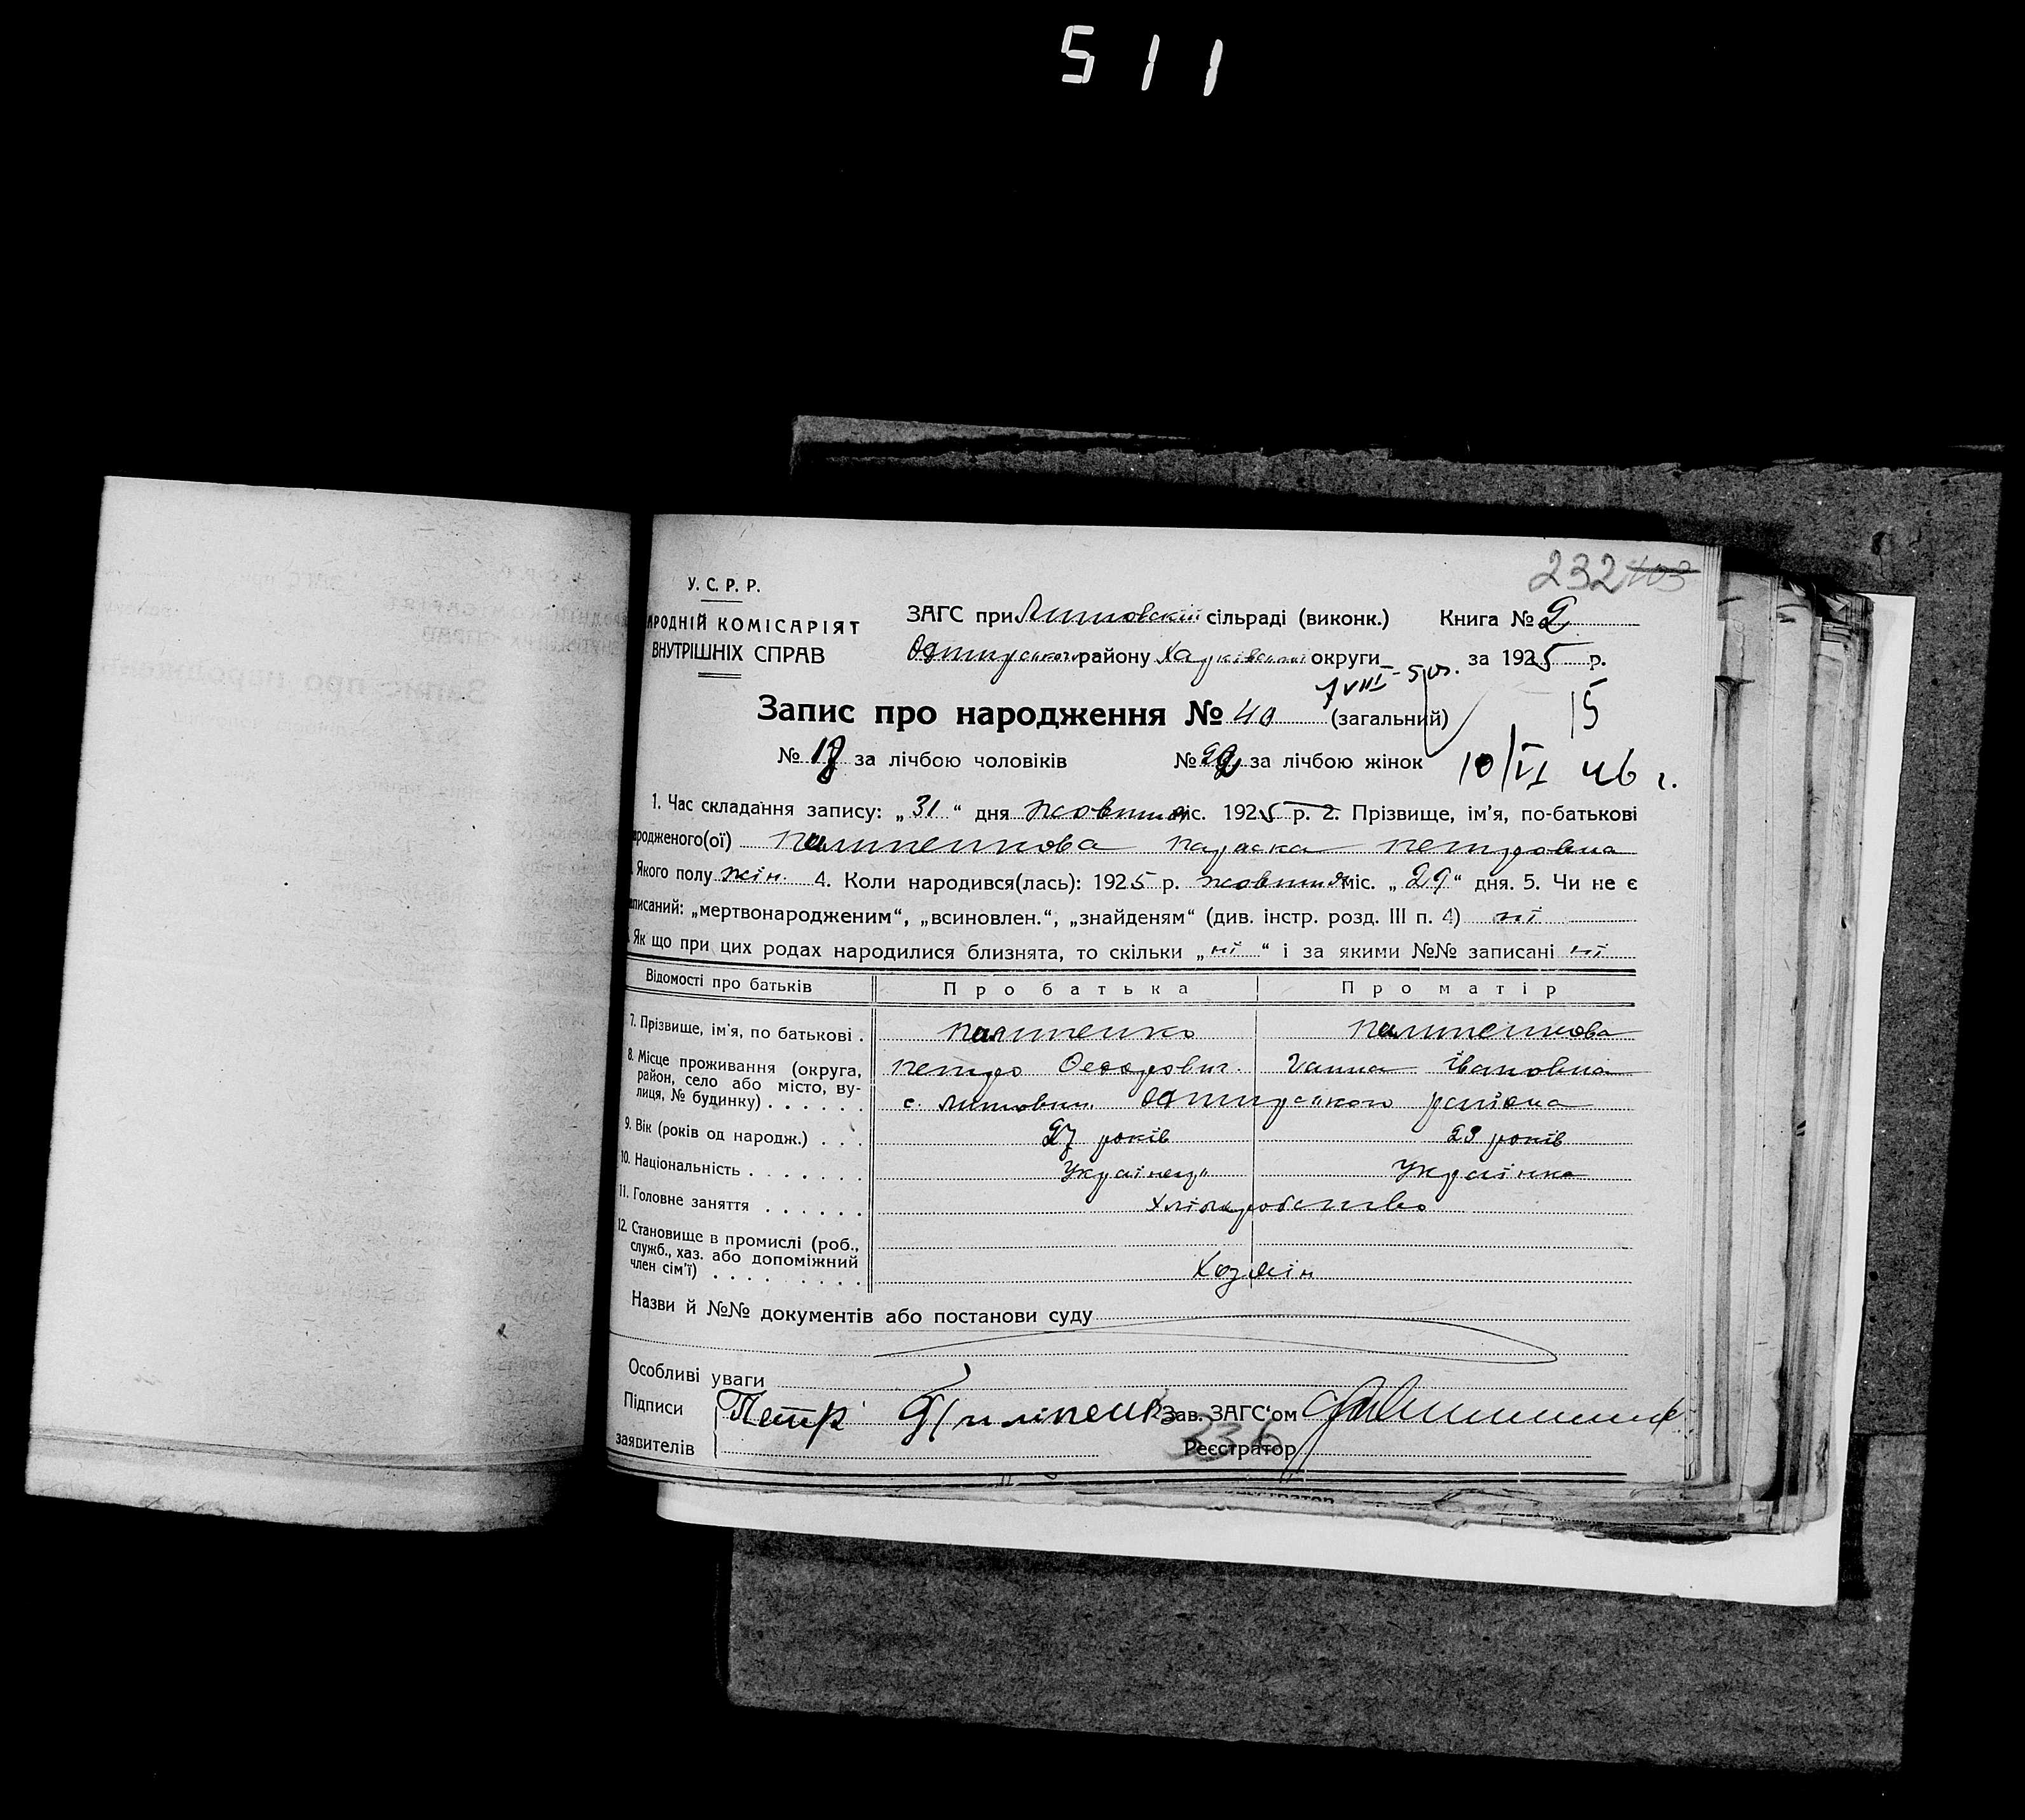 511
232 103
У. С. Р. Р.
АРОДНІЙ КОМІСАРІЯТ
ВНУТРІШНІХ СПРАВ
ЗАГС при Литовскій сільраді (виконк.) Книга № 2
району Харківської округи за 1925 р.
7 VIII - 5
Запис про народження № 40 (загальний)
15
№ 18 за лічбою чоловіків № 22 за лічбою жінок
10/VI 46 г.
1. Час складання запису: „31“ дня жовтня міс. 1925 р. 2. Прізвище, ім'я, по-батькові
родженого(ої) Параска Петровна
Якого полу жін. 4. Коли народився(лась): 1925 р. жовтня міс. „29“ дня. 5. Чи не є
писаний: „мертвонародженим“, „всиновлен.“, „знайденям“ (див. інстр. розд. III п. 4) ні
Як що при цих родах народилися близнята, то скільки „ні“ і за якими №№ записані ні
Відомості про батьків
Про батька
Про матір
7. Прізвище, ім'я, по батькові .
8. Місце проживання (округа, район, село або місто, ву-лиця, № будинку) . . . . . .
Петро
Ганна Івановна
с. района
9. Вік (років од народж.) . . . 27 років 23 років
10. Національність . . . . . . . Українец Українка
11. Головне заняття . . . . . . Хліборобство
12. Становище в промислі (роб., служб., хаз. або допоміжний член сім'ї) . . . . . . . . .
Хозяін
Назви й №№ документів або постанови суду
Особливі уваги
Підписи
заявителів
Петр Пилипенко
Зав. ЗАГС'ом
236
Реєстратор